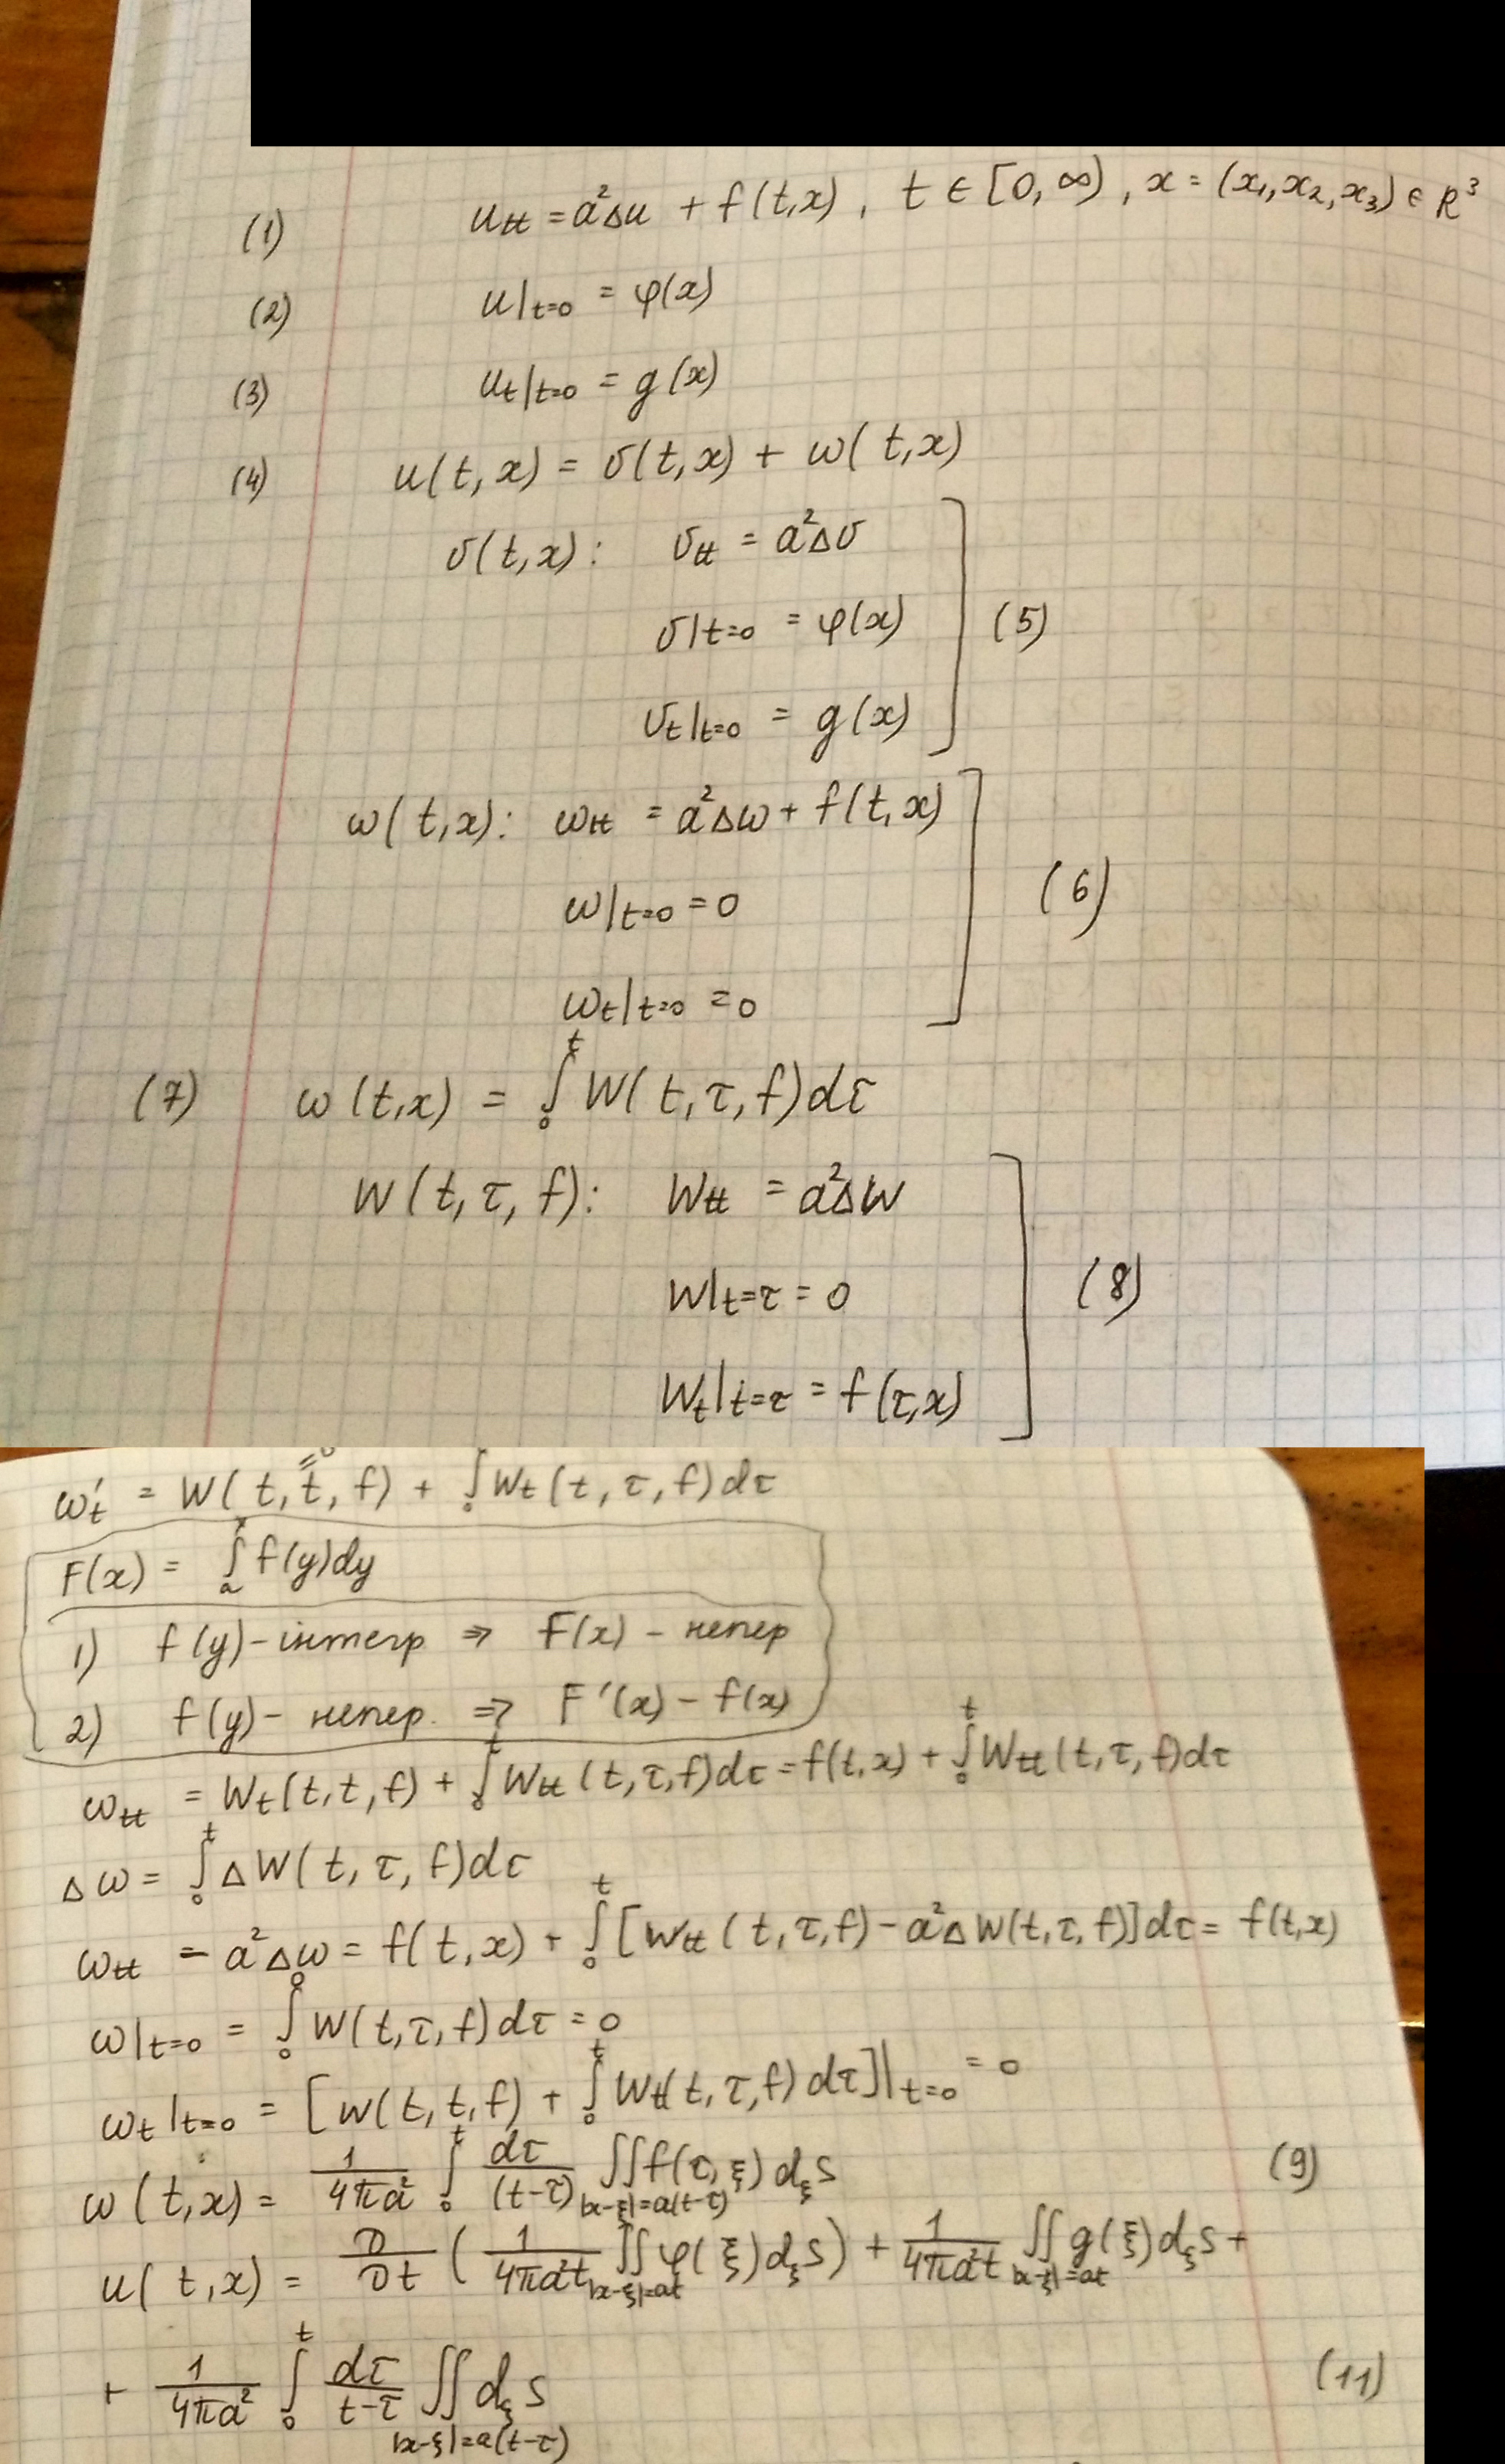 (1) u_tt = a²Δu + f(t,x), t ∈ [0,∞), x = (x₁,x₂,x₃) ∈ R³
(2) u|_{t=0} = φ(x)
(3) u_t|_{t=0} = g(x)
(4) u(t,x) = υ(t,x) + ω(t,x)
υ(t,x): υ_tt = a²Δυ
υ|_{t=0} = φ(x) (5)
υ_t|_{t=0} = g(x)
ω(t,x): ω_tt = a²Δω + f(t,x)
ω|_{t=0} = 0 (6)
ω_t|_{t=0} = 0
(7) ω(t,x) = ∫₀ᵗ W(t,τ,f)dτ
W(t,τ,f): W_tt = a²ΔW
W|_{t=τ} = 0 (8)
W_t|_{t=τ} = f(τ,x)
ω'_t = W(t,t,f) + ∫₀ W_t(t,τ,f)dτ
F(x) = ∫ₐˣ f(y)dy
1) f(y) - інтегр ⇒ F(x) - непер
2) f(y) - непер. ⇒ F'(x) - f(x)
ω_tt = W_t(t,t,f) + ∫₀ᵗ W_tt(t,τ,f)dτ = f(t,x) + ∫₀ᵗ W_tt(t,τ,f)dτ
Δω = ∫₀ᵗ ΔW(t,τ,f)dτ
ω_tt - a²Δω = f(t,x) + ∫₀ᵗ [W_tt(t,τ,f) - a²ΔW(t,τ,f)]dτ = f(t,x)
ω|_{t=0} = ∫₀⁰ W(t,τ,f)dτ = 0
ω_t|_{t=0} = [W(t,t,f) + ∫₀ᵗ W_t(t,τ,f)dτ]|_{t=0} = 0
ω(t,x) = 1/(4πa²) ∫₀ᵗ dτ/(t-τ) ∬_{|x-ξ|=a(t-τ)} f(τ,ξ)d_ξS (9)
u(t,x) = ∂/∂t (1/(4πa²t) ∬_{|x-ξ|=at} φ(ξ)d_ξS) + 1/(4πa²t) ∬_{|x-ξ|=at} g(ξ)d_ξS +
+ 1/(4πa²) ∫₀ᵗ dτ/(t-τ) ∬_{|x-ξ|=a(t-τ)} d_ξS (11)